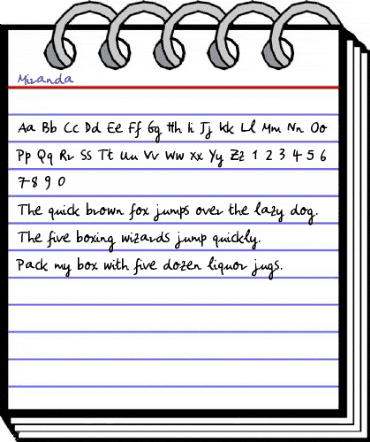 Miranda
Aa Bb Cc Dd Ee Ff Gg Hh Ii Jj Kk Ll Mm Nn Oo
Pp Qq Rr Ss Tt Uu Vv Ww Xx Yy Zz 1 2 3 4 5 6
7 8 9 0
The quick brown fox jumps over the lazy dog.
The five boxing wizards jump quickly.
Pack my box with five dozen liquor jugs.